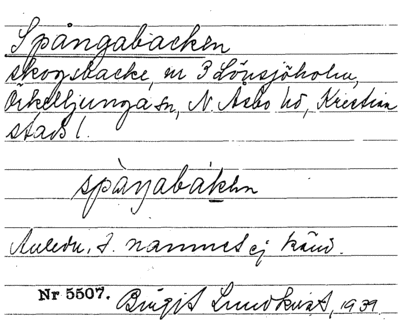 Spångabacken
skogsbacke, nr 3 Lönsjöholm,
Örkelljunga sn, N. Åsbo hd, Kristian
stads l.
spàŋabákən
Anledn. t. namnet ej känd.
Nr 5507. Birgit Lundkvist, 1939.